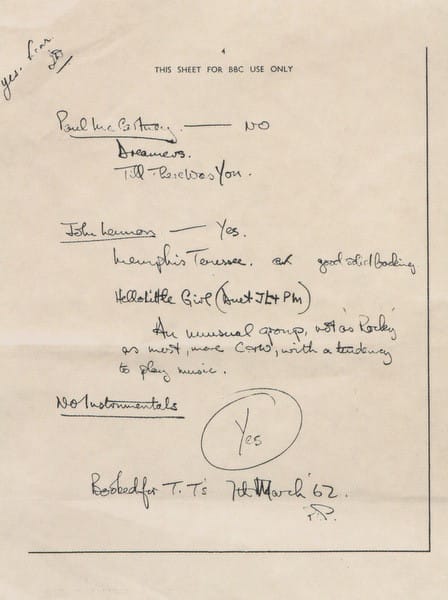 yes. Fine
4
THIS SHEET FOR BBC USE ONLY
Paul McCartney — NO
Dreamers.
Till There Was You.
John Lennon — Yes.
Memphis Tennessee. ok good solid backing
Hello Little Girl (Duet JL + PM)
An unusual group, not as 'Rocky'
as most, more C&W, with a tendency
to play music.
NO Instrumentals
Yes
Booked for T.T's 7th March '62.
P.P.